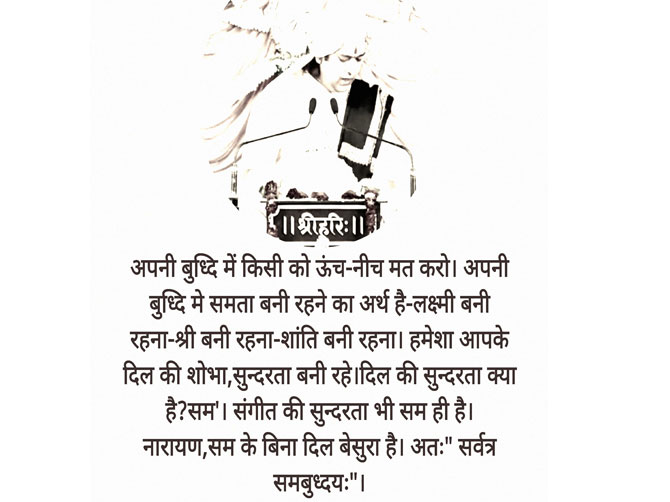 ||श्रीहरिः||
अपनी बुध्दि में किसी को ऊंच-नीच मत करो। अपनी
बुध्दि मे समता बनी रहने का अर्थ है-लक्ष्मी बनी
रहना-श्री बनी रहना-शांति बनी रहना। हमेशा आपके
दिल की शोभा,सुन्दरता बनी रहे।दिल की सुन्दरता क्या
है?सम'। संगीत की सुन्दरता भी सम ही है।
नारायण,सम के बिना दिल बेसुरा है। अतः" सर्वत्र
समबुध्दयः"।